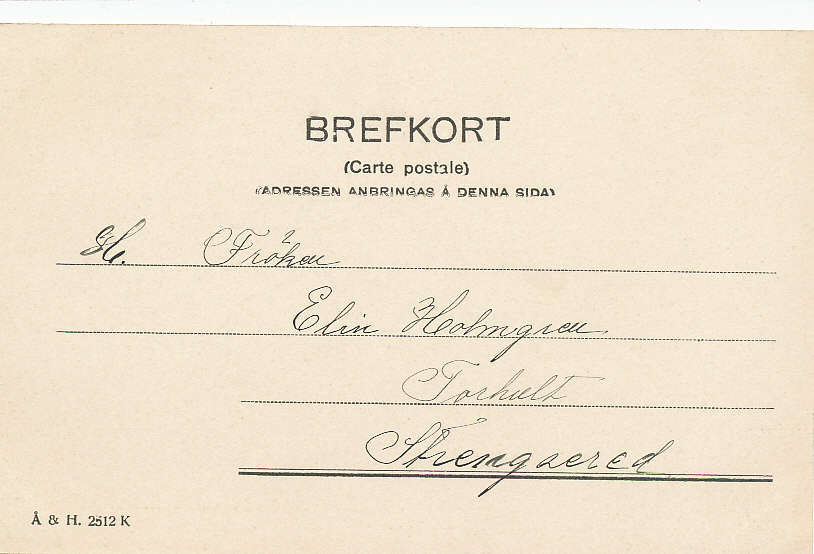 BREFKORT
(Carte postale)
(ADRESSEN ANBRINGAS Å DENNA SIDA)
H. Fröken
Elin Holmgren
Torhult
Å & H. 2512 K